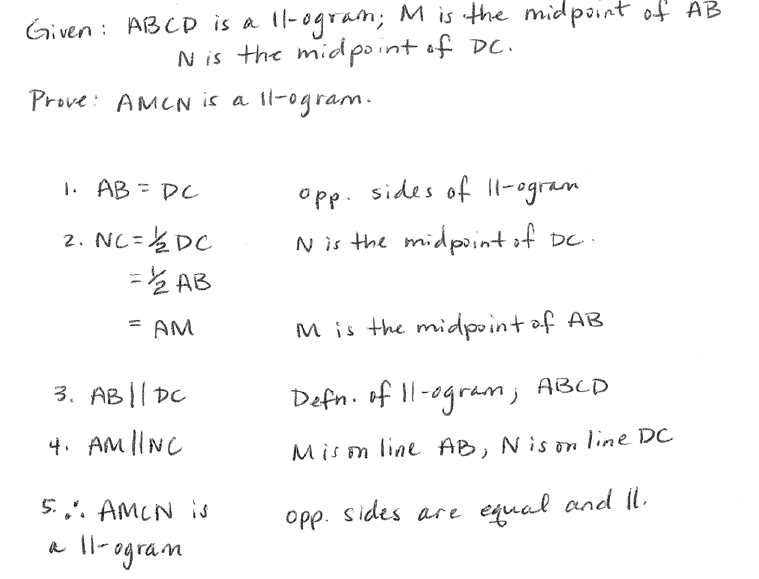 Given: ABCD is a ||-ogram; M is the midpoint of AB
N is the midpoint of DC.
Prove: AMCN is a ||-ogram.
1. AB = DC opp. sides of ||-ogram
2. NC = ½ DC N is the midpoint of DC.
= ½ AB
= AM M is the midpoint of AB
3. AB || DC Defn. of ||-ogram; ABCD
4. AM || NC M is on line AB, N is on line DC
5. ∴ AMCN is opp. sides are equal and ||.
a ||-ogram